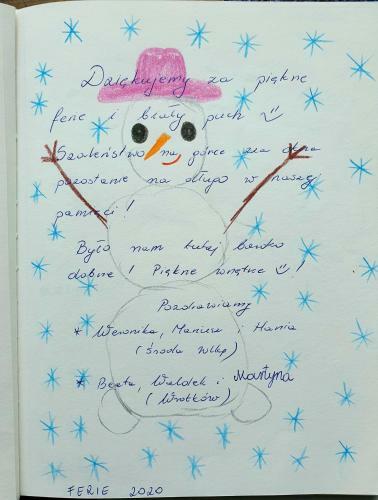 Dziękujemy za piękne
ferie i biały puch
Szaleństwo na górce za oknem
pozostanie na długo w naszej
pamięci !
Było nam tutaj bardzo
dobrze ! Piękne wnętrze !
Pozdrawiamy
* Weronika, Mariusz i Hania
(Środa Wlkp)
* Beata, Waldek i Martyna
(Wrotków)
FERIE 2020